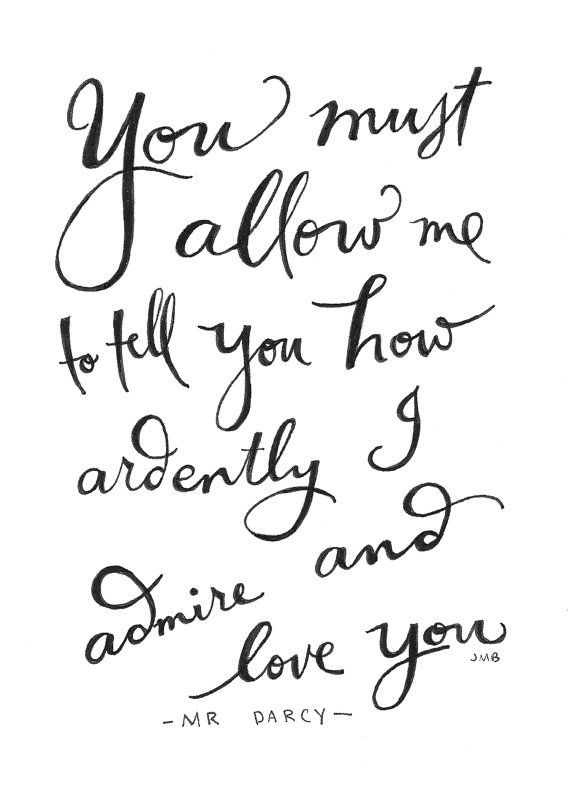 You must
allow me
to tell you how
ardently I
admire and
love you
JMB
-MR DARCY-